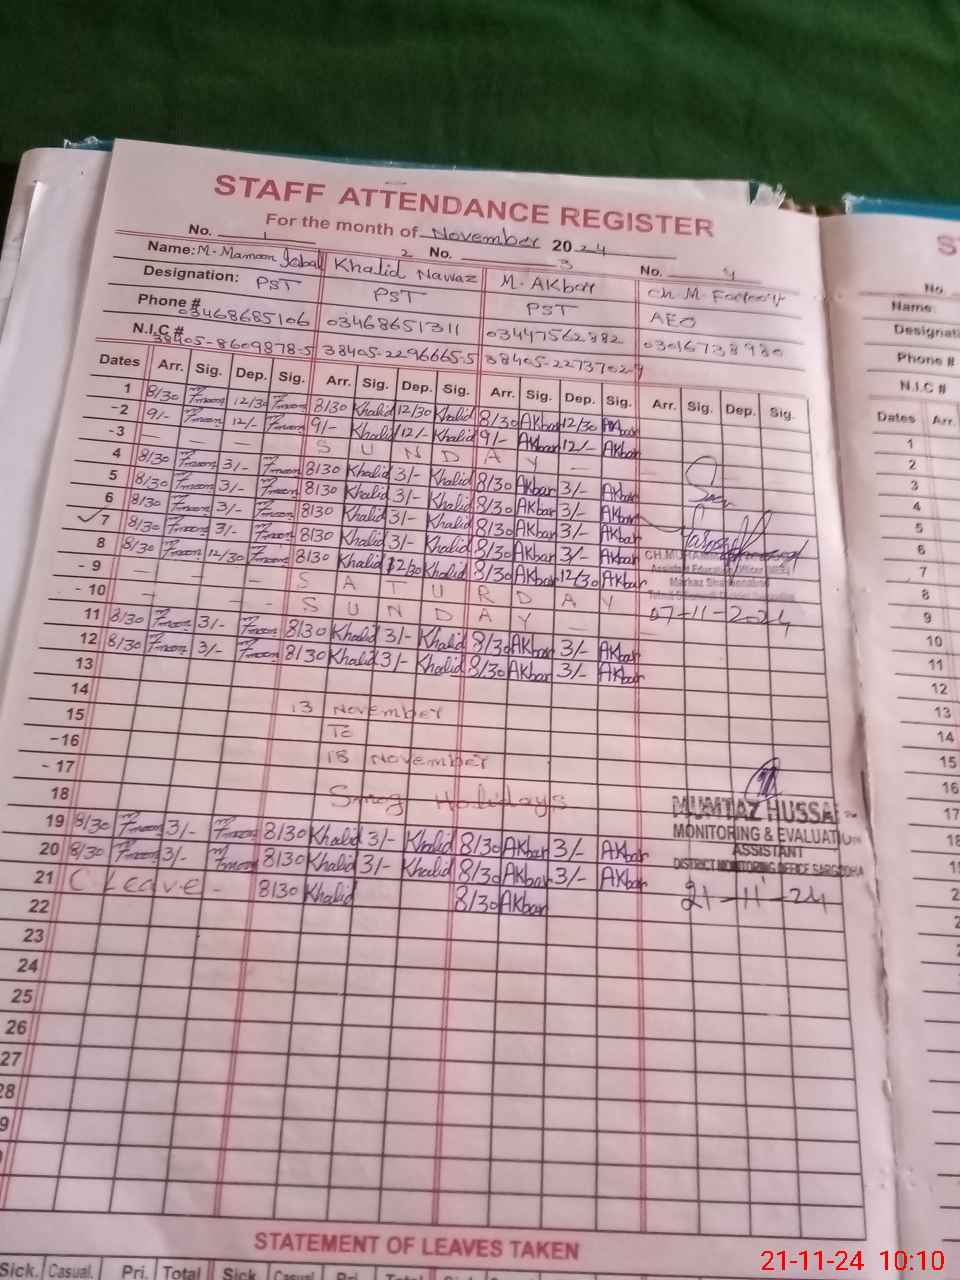 STAFF ATTENDANCE REGISTER
For the month of November 2024
No. 1 2 No. 3 No. 4
Name: M. Mamoon Iqbal Khalid Nawaz M. Akbar Ch M. Farooq
Designation: PST PST PST AEO
Phone # 03468685106 03468651311 03447562882 03016738980
N.I.C # 38405-8609878-5 38405-2296665-5 38405-2273702-9
Dates Arr. Sig. Dep. Sig. Arr. Sig. Dep. Sig. Arr. Sig. Dep. Sig. Arr. Sig. Dep. Sig.
1 8/30 12/30 8/30 Khalid 12/30 Khalid 8/30 Akbar 12/30 Akbar
-2 9/- 12/- 9/- Khalid 12/- Khalid 9/- Akbar 12/- Akbar
-3 — — — — S U N D A Y — —
4 8/30 3/- 8/30 Khalid 3/- Khalid 8/30 Akbar 3/- Akbar
5 8/30 3/- 8/30 Khalid 3/- Khalid 8/30 Akbar 3/- Akbar
6 8/30 3/- 8/30 Khalid 3/- Khalid 8/30 Akbar 3/- Akbar
7 8/30 3/- 8/30 Khalid 3/- Khalid 8/30 Akbar 3/- Akbar
8 8/30 12/30 8/30 Khalid 12/30 Khalid 8/30 Akbar 12/30 Akbar
- 9 — — — — S A T U R D A Y
- 10 — — — — S U N D A Y — —
07-11-2024
11 8/30 3/- 8/30 Khalid 3/- Khalid 8/30 Akbar 3/- Akbar
12 8/30 3/- 8/30 Khalid 3/- Khalid 8/30 Akbar 3/- Akbar
13
14
15 13 November
-16 To
- 17 18 November
18 Smog Holidays
MUMTAZ HUSSAI
MONITORING & EVALUATION
ASSISTANT
DISTRICT MONITORING OFFICE SARGODHA
21-11-24
19 8/30 3/- 8/30 Khalid 3/- Khalid 8/30 Akbar 3/- Akbar
20 8/30 3/- 8/30 Khalid 3/- Khalid 8/30 Akbar 3/- Akbar
21 C Leave - 8/30 Khalid 8/30 Akbar
22
23
24
25
26
27
28
9
STATEMENT OF LEAVES TAKEN
Sick. Casual. Pri. Total Sick. Casual Pri. Total
No.
Name:
Designati
Phone #
N.I.C #
Dates Arr.
1
2
3
4
5
6
7
8
9
10
11
12
13
14
15
16
17
18
21-11-24 10:10